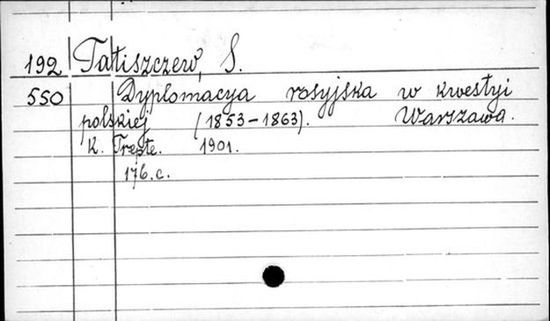 192 Tatiszczew, S.
550 Dyplomacya rosyjska w kwestyi
polskiej (1853-1863). Warszawa.
K. Trepte. 1901.
176.c.